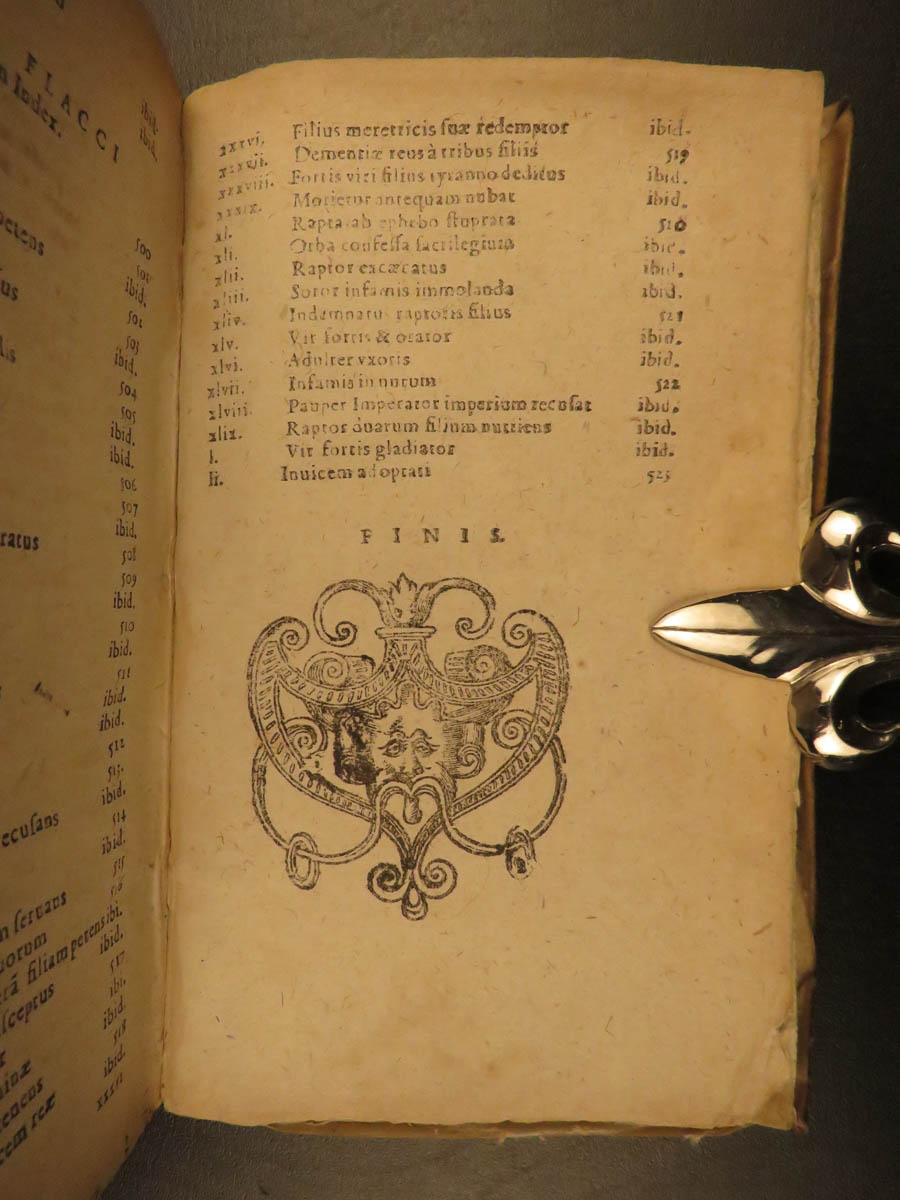 FLACCI
n Index.
ibid.
ibid.
petens 500
us ibid.
501
503
lis ibid.
504
505
ibid.
ibid.
506
507
ratus ibid.
508
509
ibid.
510
ibid.
511
ibid.
ibid.
512
513.
ibid.
ecusans 514
ibid.
515
n seruans 516
uorum ibid.
erā filiam petens ibi.
sceptus ibid.
517
ibi.
inæ ibid.
518
ibid.
cem rex xxxvi
xxxvi. Filius meretricis suæ redemptor ibid.
xxxvij. Dementiæ reus à tribus filiis 519
xxxviii. Fortis viri filius tyranno deditus ibid.
xxxix. Morietur antequam nubat ibid.
xl. Rapta ab ephebo stuprata 510
xli. Orba confessa sacrilegium ibid.
xlii. Raptor excæcatus ibid.
xliii. Soror infamis immolanda ibid.
xliv. Indemnatus raptoris filius 521
xlv. Vir fortis & orator ibid.
xlvi. Adulter vxoris ibid.
xlvii. Infamis in nurum 522
xlviii. Pauper Imperator imperium recusat ibid.
xlix. Raptor duarum filium nutriens ibid.
l. Vir fortis gladiator ibid.
li. Inuicem adoptati 523
FINIS.